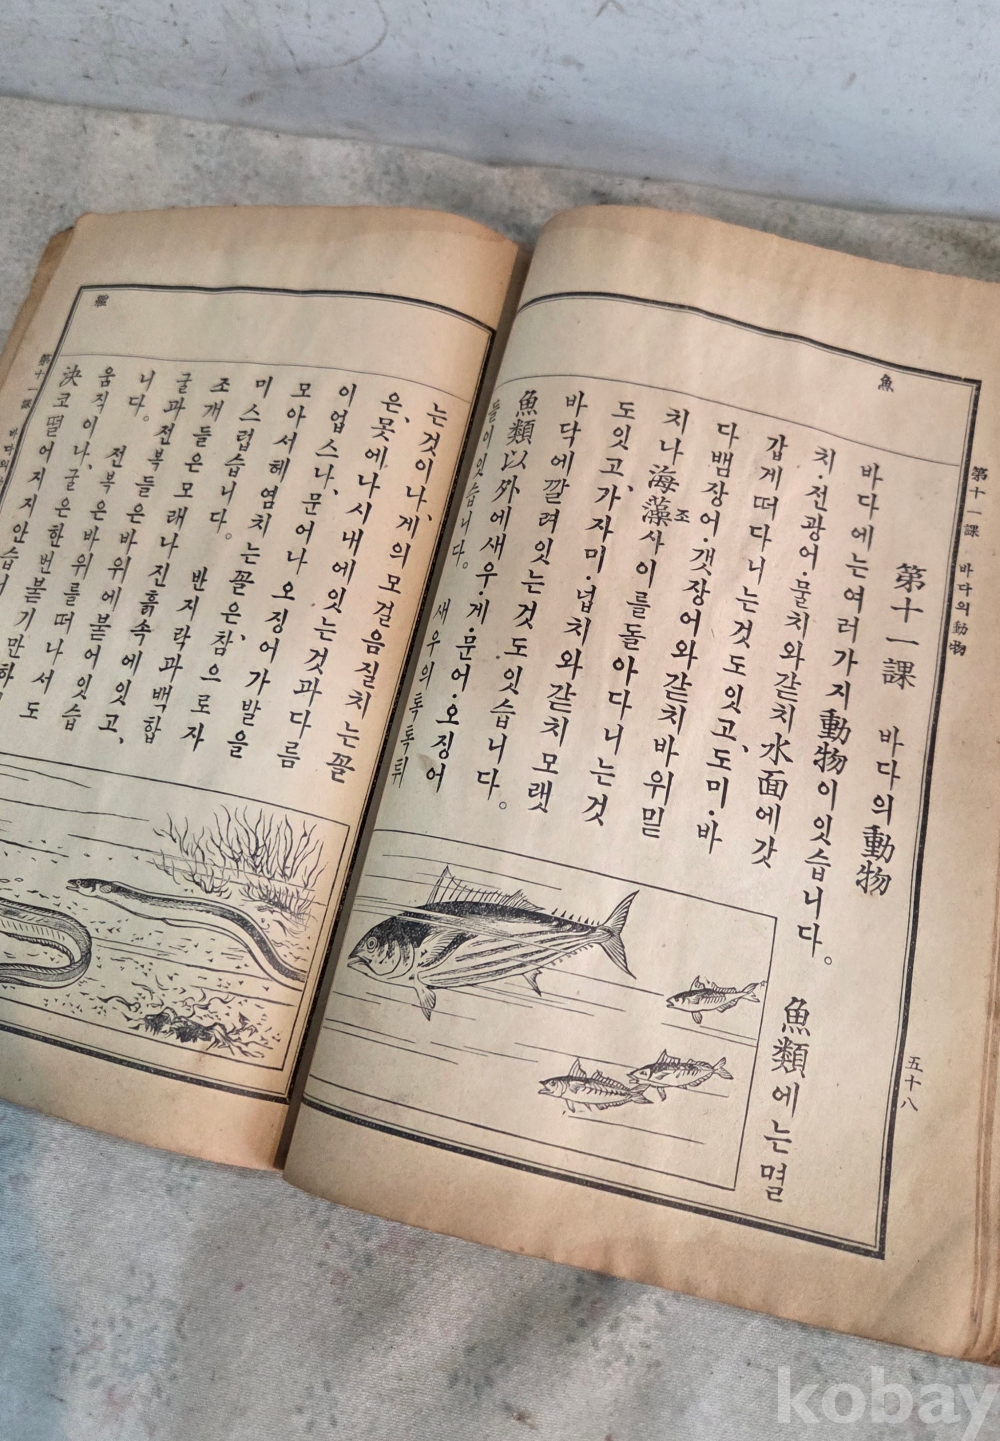 魚
第十一課 바다의動物
五十八
第十一課 바다의動物
바다에는여러가지動物이잇습니다。 魚類에는멸
치·전광어·뭀치와갇치水面에갓
갑게떠다니는것도잇고、도미·바
다뱀장어·갯장어와갇치바위밑
치나海藻사이를돌아다니는것
조
도잇고、가자미·넙치와갇치모랫
바닥에깔려잇는것도잇습니다。
魚類以外에새우·게·문어·오징어
들이잇습니다。 새우의톡톡튀
는것이나、게의모걸음질치는꼴
은、못에나시내에잇는것과다름
이업스나、문어나오징어가발을
모아서헤염치는꼴은、참으로자
미스럽습니다。 반지락과백합
조개들은모래나진흙속에잇고、
굴과전복들은바위에붙어잇습
니다。 전복은바위를떠나서도
움직이나、굴은한번붙기만하
決코떨어지지안습니
第十一課 바다의
kobay